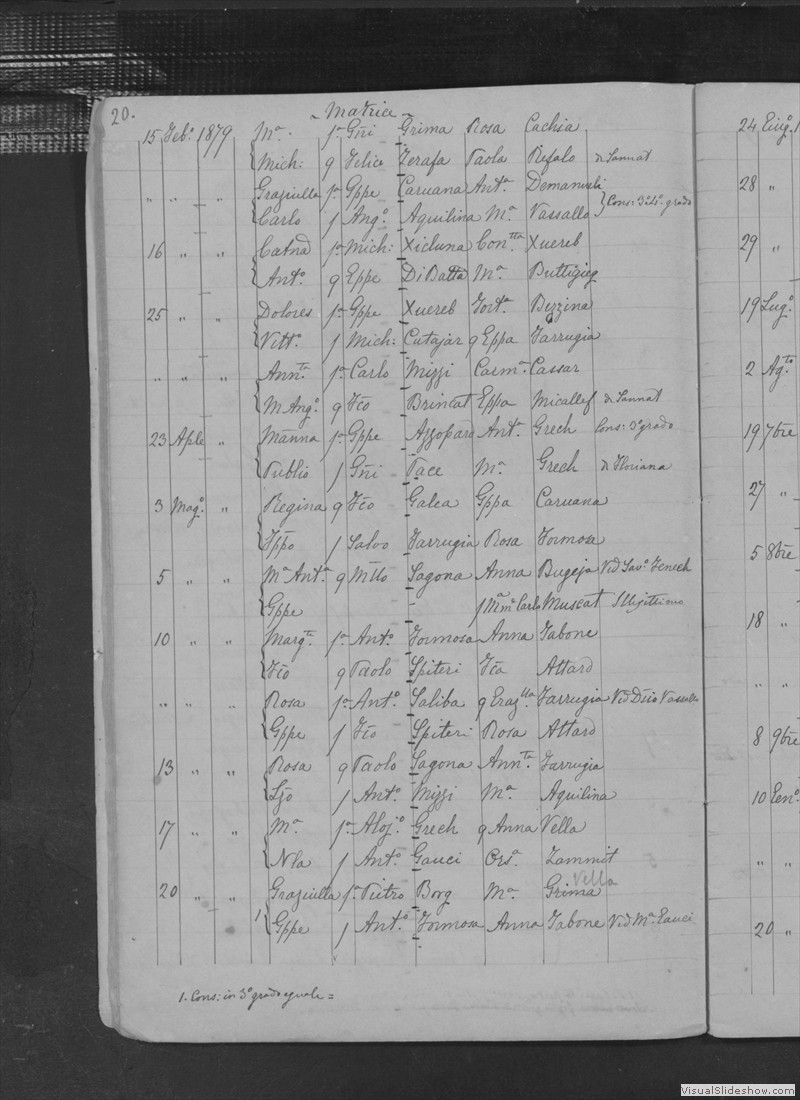 20.
- Matrice -
15 Feb.º 1879 Mª. fª Gñi Grima Rosa Cachia
Mich: q Felice Zerafa Paola Refalo di Sannat
„ „ „ Graziulla fª Gppe Caruana Antª. Demanueli
Carlo f Angº. Aquilina Mª Vassallo } Cons: 3º 4º. grado
16 „ „ Catnª fª Mich: Xicluna Conᵗᵗᵃ Xuereb
Antº. q Gppe DiBatta Mª. Buttigieg
25 „ „ Dolores fª Gppe Xuereb Fortª Bezzina
Vittº. f Mich: Cutajar q Gppa Farrugia
„ „ „ Annᵗᵃ fª Carlo Mizzi Carmª Cassar
M Angº. q Fcõ Brincat Gppa Micallef di Sannat
23 Aple „ Marina fª Gppe Azzopard Antª Grech Cons: 3º grado
Publio f Gñi Pace Mª. Grech di Floriana
3 Magº. „ Regina q Fcõ Galea Gppa Caruana
f Salvo Farrugia Rosa Formosa
5 „ „ Mª Antª. q Sagona Anna Bugeja Vid Savº. Fenech
Gppe - f Carlo Muscat
10 „ „ Margᵗᵃ fª Antº. Formosa Anna Tabone
Fcõ q Paolo Spiteri Fcã Attard
„ „ „ Rosa fª Antº Saliba q Grazˡˡᵃ Farrugia Vid Vassallo
Gppe f Fcõ Spiteri Rosa Attard
13 „ „ Rosa q Paolo Sagona Annᵗᵃ Farrugia
f Antº. Mizzi Mª. Aquilina
17 „ „ Mª. fª Alojº Grech q Anna Vella
Nla f Antº Gauci Orsª. Zammit
Vella
20 „ „ Graziulla fª Pietro Borg Mª. Grima
1 Gppe f Antº. Formosa Anna Tabone Vid Mª Gauci
1. Cons: in 3º grado eguale =
24 Giugº. 1
28 „
29 „
19 Lugº.
2 Agᵗᵒ
19 7bre
27 „
5 8bre
18 „
„ „
8 9bre
10 Genº.
„ „
20 „
VisualSlideshow.com